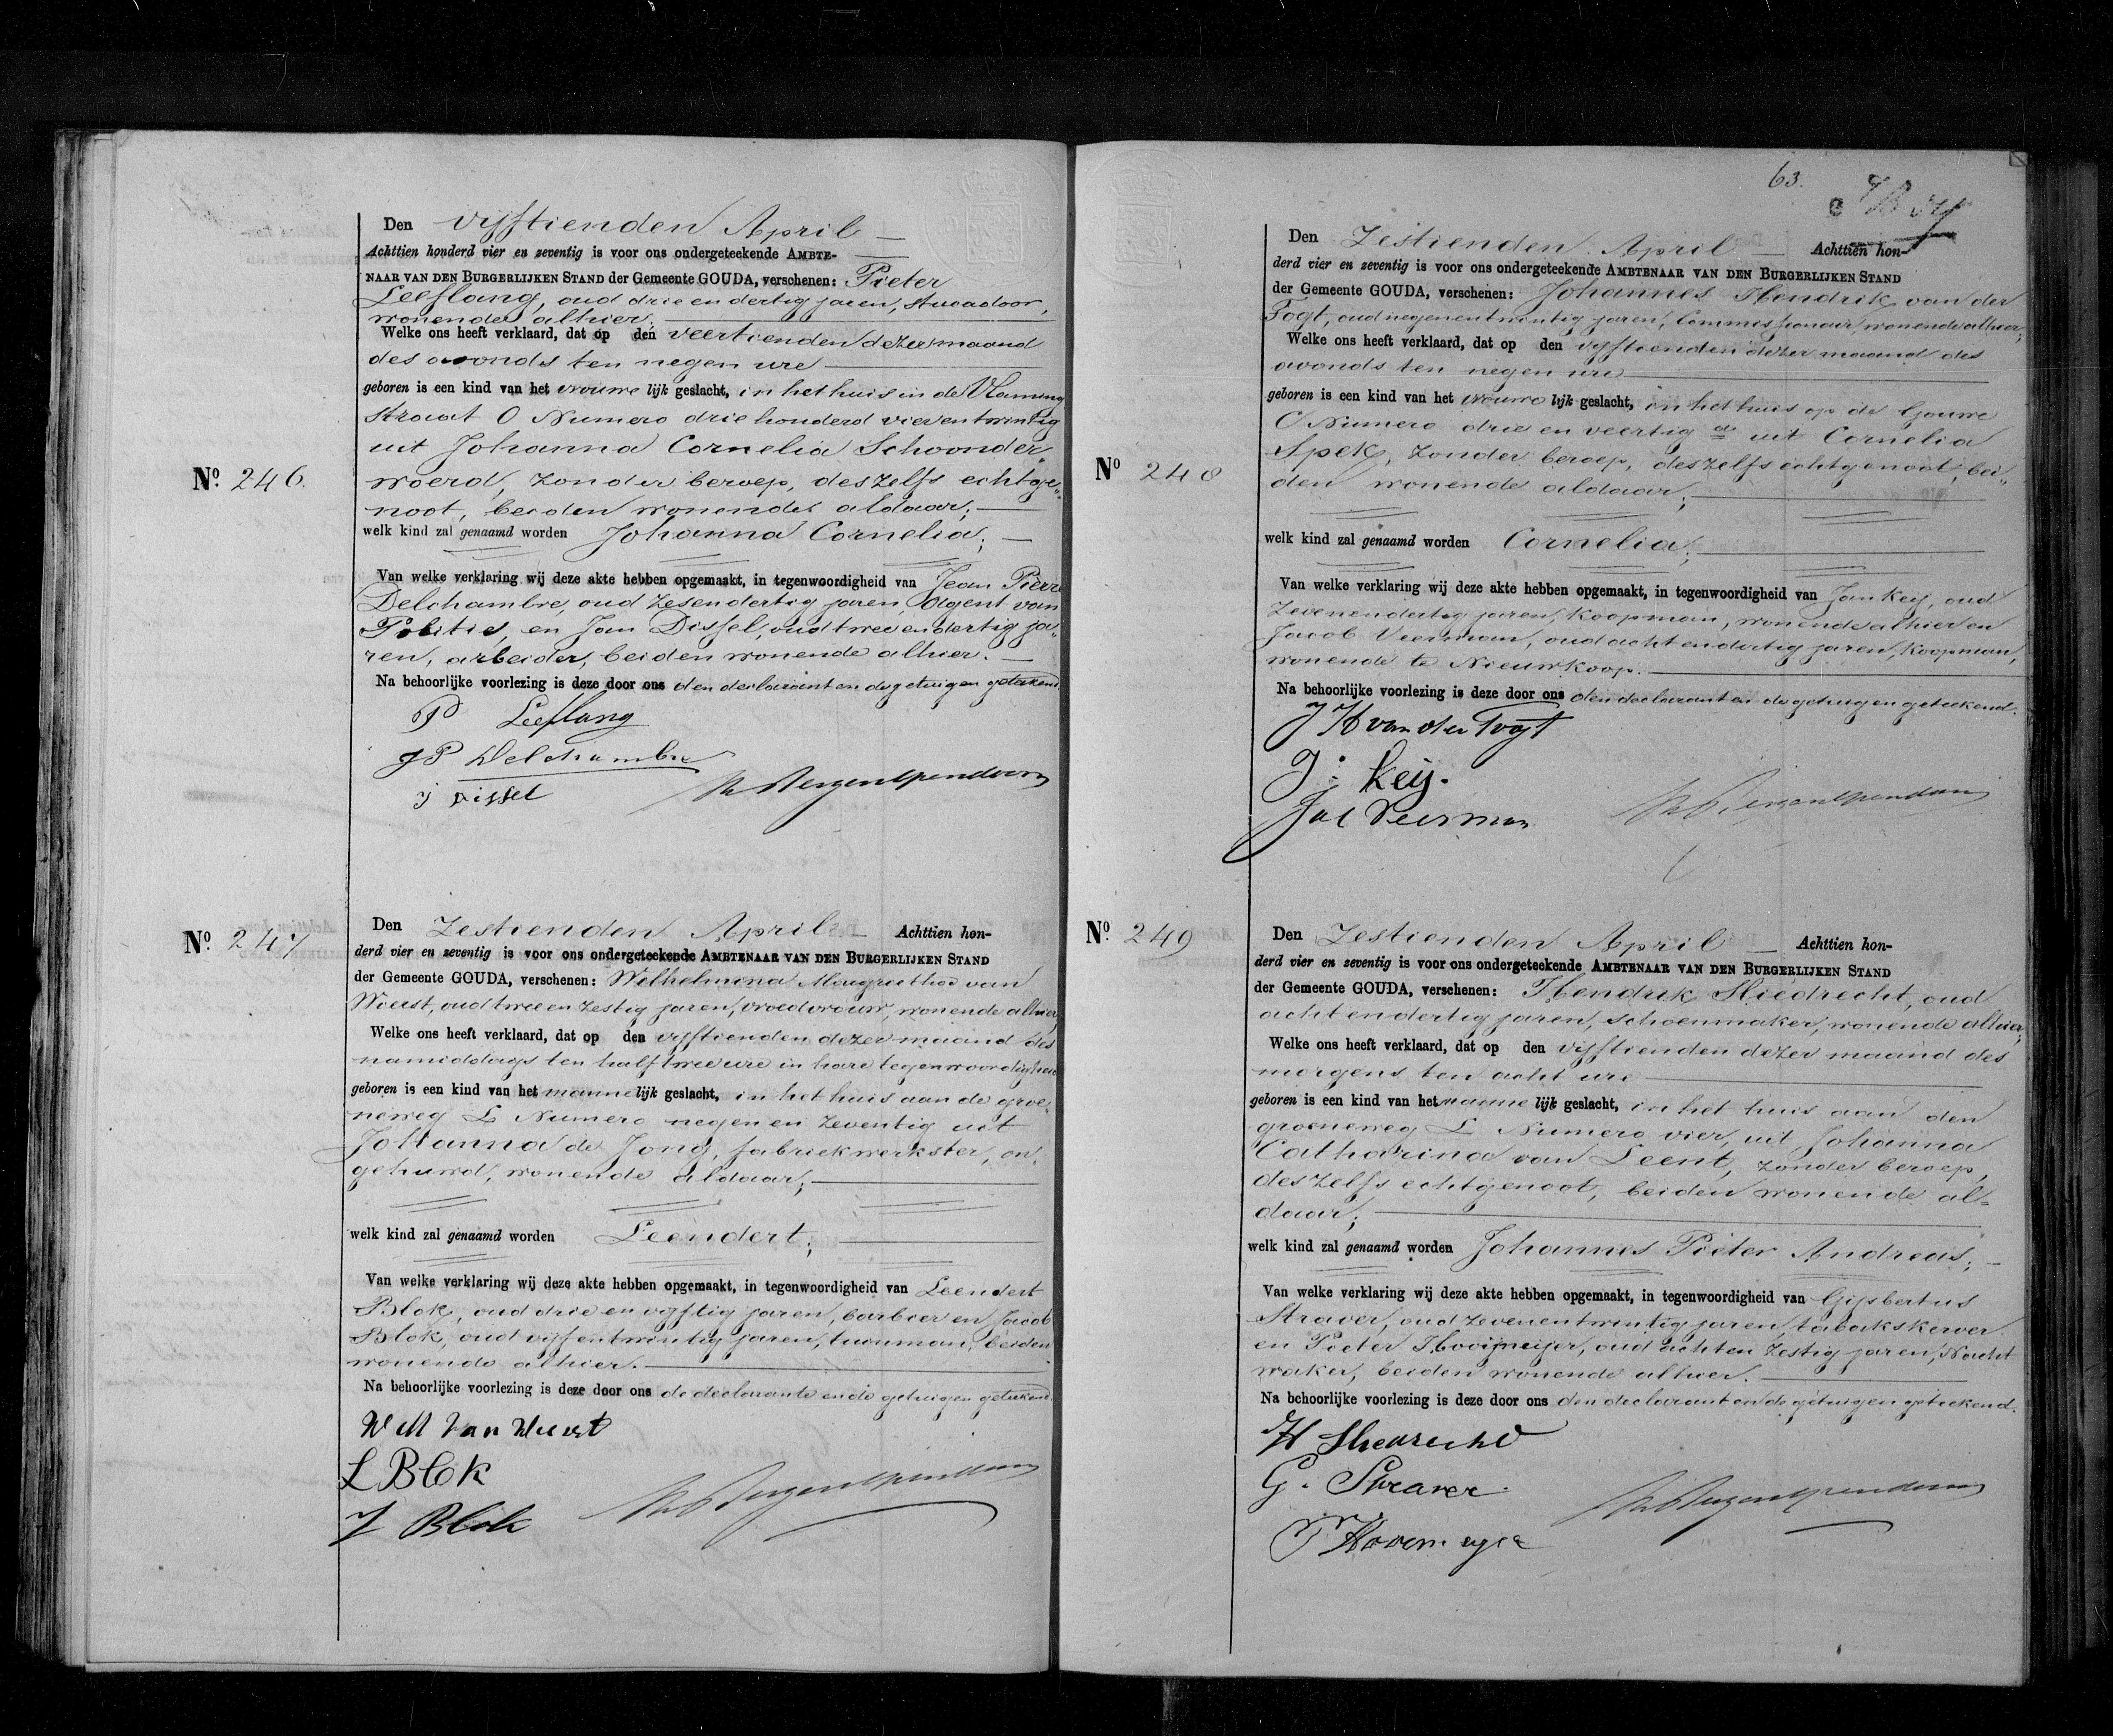 Den vijftienden April
Achttien honderd vier en zeventig is voor ons ondergeteekende AMBTE-
NAAR VAN DEN BURGERLIJKEN STAND der Gemeente GOUDA, verschenen: Pieter
Leeflang, oud drie en dertig jaren, stucadoor,
wonende alhier;
Welke ons heeft verklaard, dat op den veertienden dezer maand
des avonds ten negen ure
geboren is een kind van het vrouwe lijk geslacht, in het huis in de Vlaming
straat O Numero driehonderd vierentwintig
uit Johanna Cornelia Schoonder„
Nº. 246.
woerd, zonder beroep, deszelfs echtge„
noot, beiden wonende aldaar;
welk kind zal genaamd worden Johanna Cornelia;
Van welke verklaring wij deze akte hebben opgemaakt, in tegenwoordigheid van Jean Pierre
Delchambre, oud zesendertig jaren, Agent van
Politie, en Jan Dissel, oud twee en dertig ja„
ren, arbeider, beiden wonende alhier.
Na behoorlijke voorlezing is deze door ons den declarant en de getuigen geteekend
P Leeflang
JP Delchambre
J Dissel
Nº. 247
Den Zestienden April Achttien hon-
derd vier en zeventig is voor ons ondergeteekende AMBTENAAR VAN DEN BURGERLIJKEN STAND
der Gemeente GOUDA, verschenen: Wilhelmina Margretha van
Wierst, oud twee en zestig jaren, vroedvrouw, wonende alhier,
Welke ons heeft verklaard, dat op den vijftienden dezer maand des
namiddags ten half twee ure in hare tegenwoordigheid
geboren is een kind van het manne lijk geslacht, in het huis aan de groe„
neweg L Numero negen en zeventig uit
Johanna de Jong, fabriekwerkster, on„
gehuwd, wonende aldaar;
welk kind zal genaamd worden Leendert;
Van welke verklaring wij deze akte hebben opgemaakt, in tegenwoordigheid van Leendert
Blok, oud drie en vijftig jaren, barbier en Jacob
Blok, oud vijfentwintig jaren, tuinman, beiden
wonende alhier.
Na behoorlijke voorlezing is deze door ons de declarante en de getuigen geteekend.
W M van Wierst
L Blok
J Blok
63.
Den Zestienden April Achttien hon-
derd vier en zeventig is voor ons ondergeteekende AMBTENAAR VAN DEN BURGERLIJKEN STAND
der Gemeente GOUDA, verschenen: Johannes Hendrik van der
Togt, oud negenentwintig jaren, Commissionair, wonende alhier;
Welke ons heeft verklaard, dat op den vijftienden dezer maand des
avonds ten negen ure
geboren is een kind van het vrouwe lijk geslacht, in het huis op de Gouwe
C Numero drie en veertig a uit Cornelia
Nº 248
Spek, zonder beroep, deszelfs echtgenoot, bei„
den wonende aldaar;
welk kind zal genaamd worden Cornelia;
Van welke verklaring wij deze akte hebben opgemaakt, in tegenwoordigheid van Jan Keij, oud
zevenendertig jaren, Koopman, wonende alhier en
Jacob Veerman, oud acht en dertig jaren, koopman,
wonende te Nieuwkoop.
Na behoorlijke voorlezing is deze door ons den declarant en de getuigen geteekend.
J H van der Togt
J: Keij.
Jac Veerman
Nº. 249
Den Zestienden April Achttien hon-
derd vier en zeventig is voor ons ondergeteekende AMBTENAAR VAN DEN BURGERLIJKEN STAND
der Gemeente GOUDA, verschenen: Hendrik Sliedrecht, oud
acht en dertig jaren, schoenmaker, wonende alhier;
Welke ons heeft verklaard, dat op den vijftienden dezer maand des
morgens ten acht ure
geboren is een kind van het manne lijk geslacht, in het huis aan den
groeneweg L Numero vier, uit Johanna
Catharina van Leent, zonder beroep,
deszelfs echtgenoot, beiden wonende al„
daar;
welk kind zal genaamd worden Johannes Pieter Andreas;
Van welke verklaring wij deze akte hebben opgemaakt, in tegenwoordigheid van Gijsbertus
Straver, oud zevenentwintig jaren, tabakskerver
en Pieter Hooijmeijer, oud acht en zestig jaren, Nacht
waker, beiden wonende alhier.
Na behoorlijke voorlezing is deze door ons den declarant en de getuigen geteekend.
H Sliedrecht
G. Straver